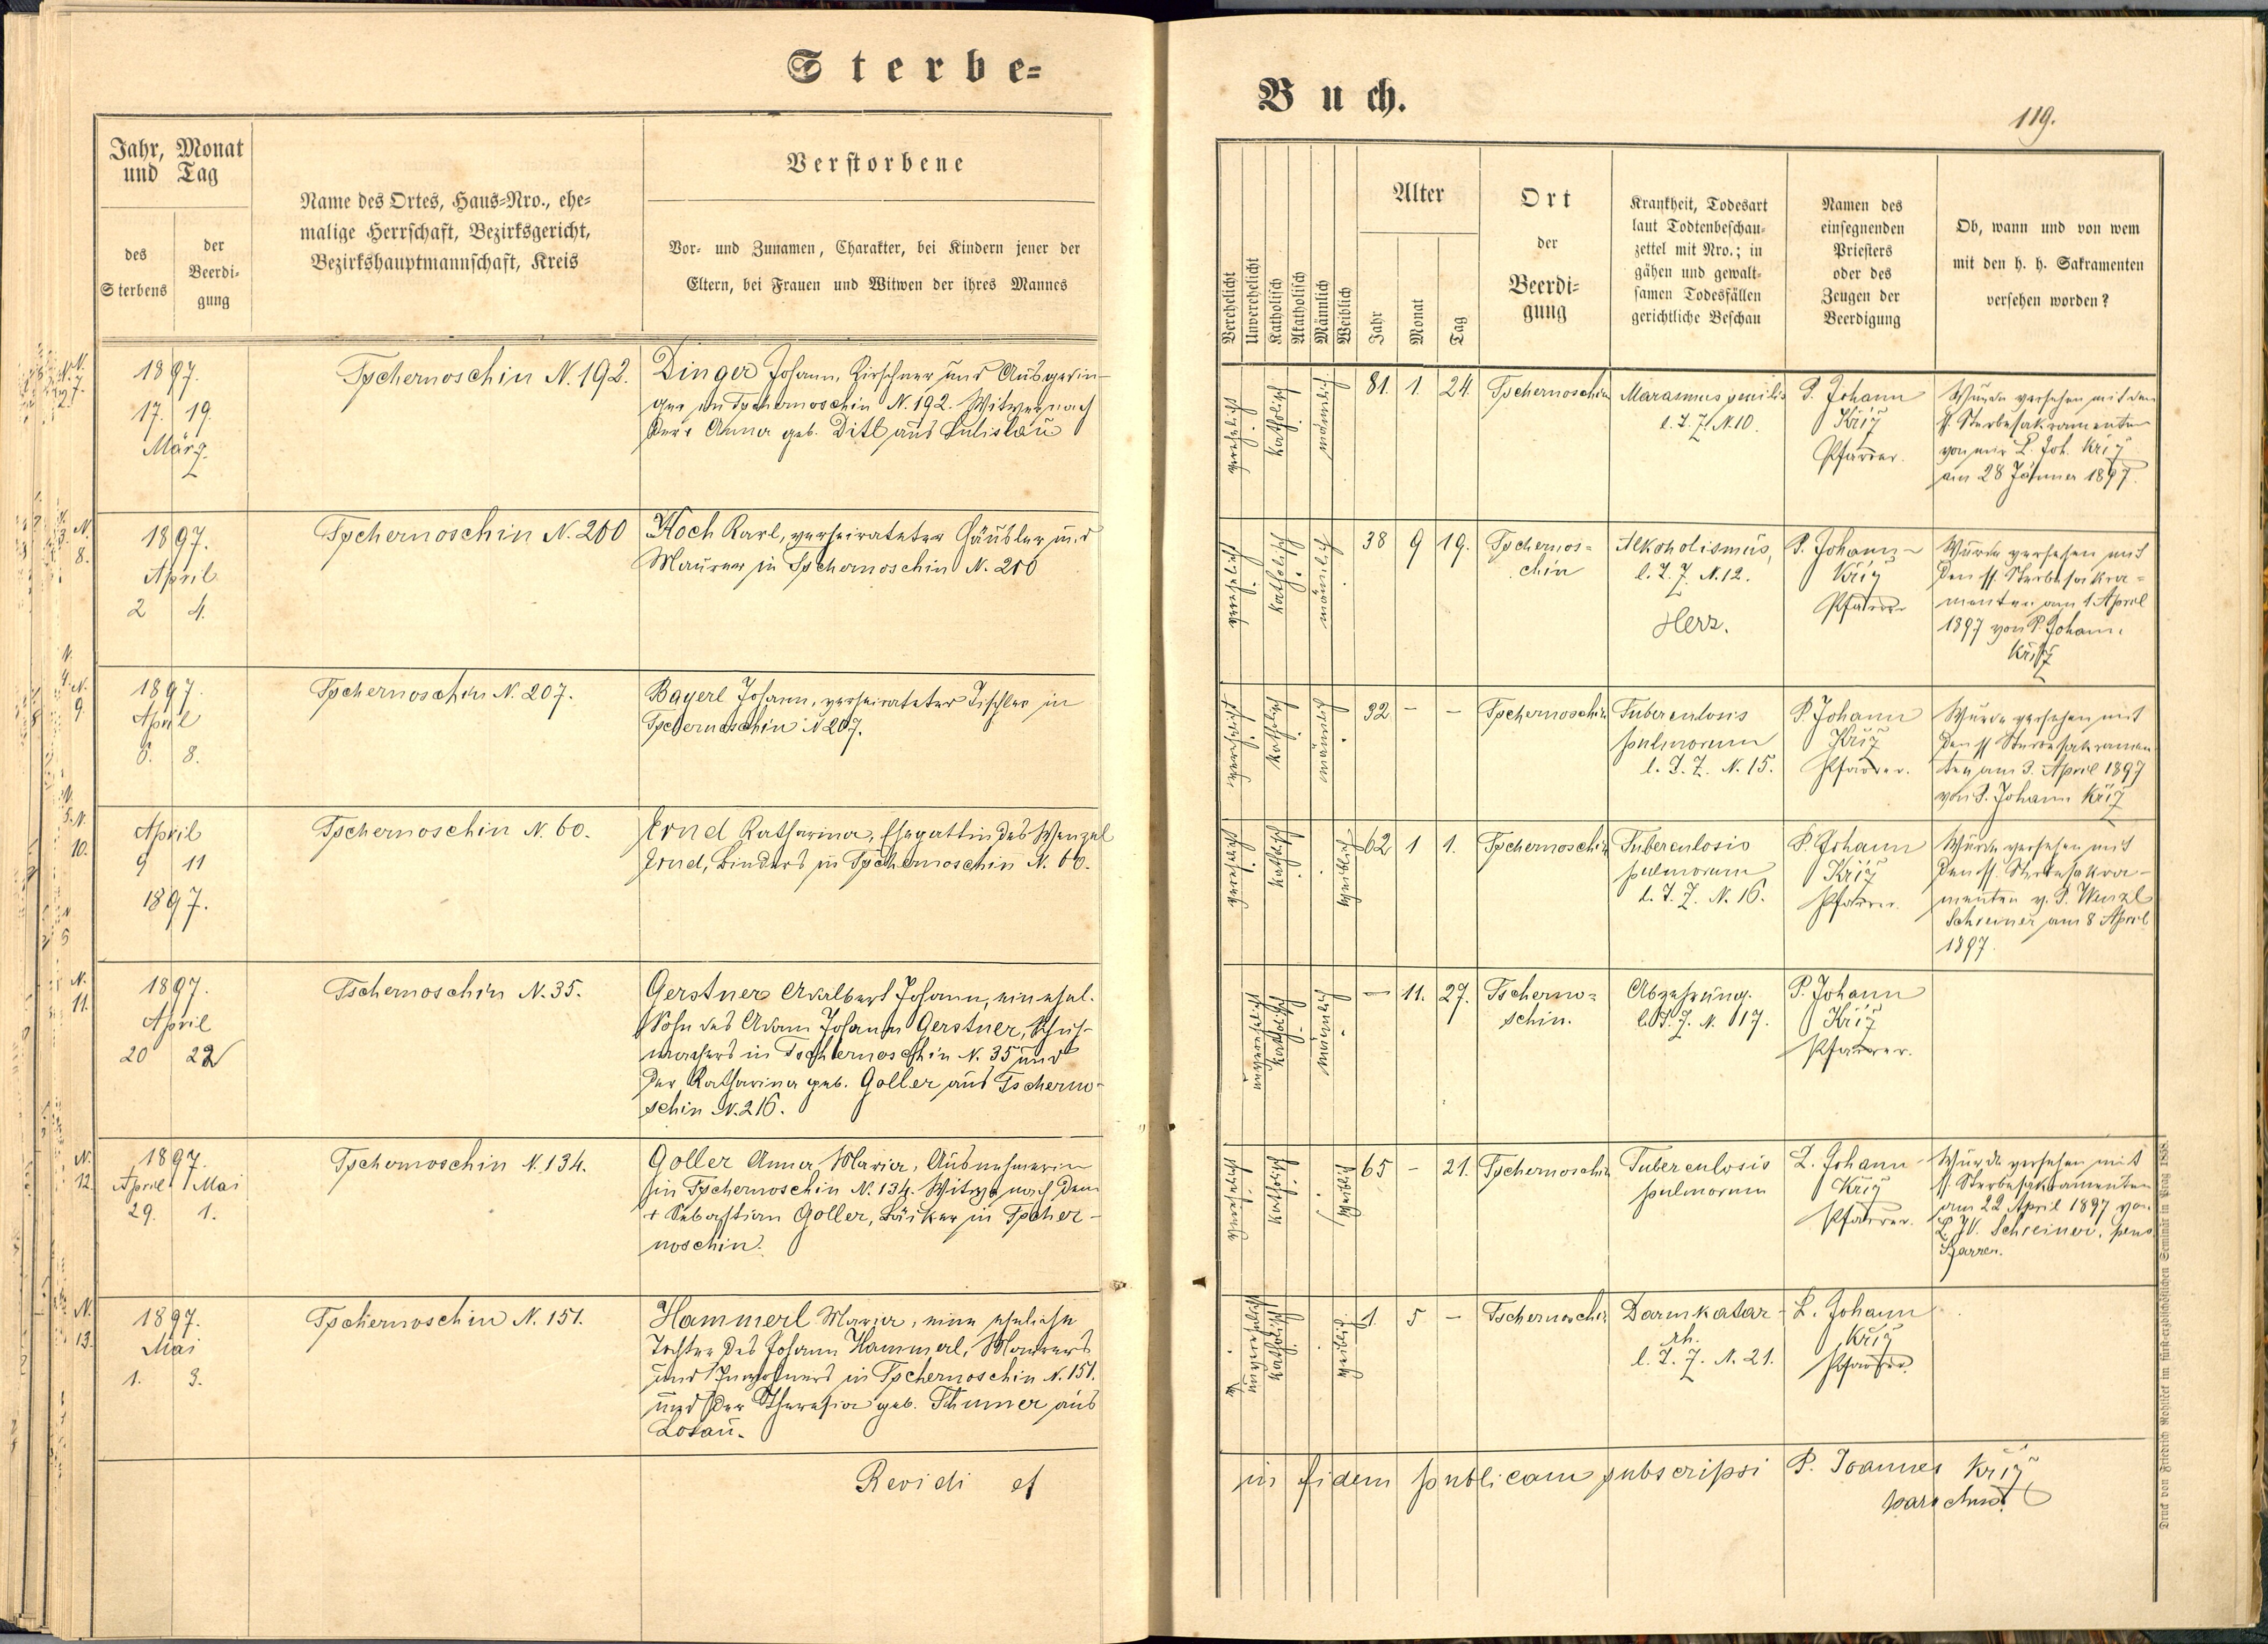 Sterbe=
Buch.
119.
Jahr, Monat
und Tag
des
Sterbens
der
Beerdi-
gung
Name des Ortes, Haus=Nro., ehe=
malige Herrschaft, Bezirksgericht,
Bezirkshauptmannschaft, Kreis
Verstorbene
Vor- und Zunamen, Charakter, bei Kindern jener der
Eltern, bei Frauen und Witwen der ihres Mannes
Verehelicht
Unverehelicht
Katholisch
Akatholisch
Männlich
Weiblich
Alter
Jahr
Monat
Tag
Ort
der
Beerdi=
gung
Krankheit, Todesart
laut Todtenbeschau-
zettel mit Nro.; in
gähen und gewalt-
samen Todesfällen
gerichtliche Beschau
Namen des
einsegnenden
Priesters
oder des
Zeugen der
Beerdigung
Ob, wann und von wem
mit den h. h. Sakramenten
versehen worden?
N.
7.
1897.
17. 19.
März.
Tschernoschin N. 192.
Dinger Johann, Kirschner und Ausgedin-
ger in Tschernoschin N. 192. Witwer nach
der + Anna geb. Ditl aus Lulislau
verehelicht
katholisch
männlich
81. 1. 24.
Tschernoschin
Marasmus senilis
l. T. Z. N. 10.
P. Johann
Kříž
Pfarrer.
Wurde versehen mit den
hl. Sterbesakramenten
von mir P. Joh. Kříž
am 28 Jänner 1897.
N.
8.
1897.
April
2 4.
Tschernoschin N. 200
Koch Karl, verheirateter Häusler und
Maurer in Tschernoschin N. 200
verehelicht
katholisch
männlich
38 9 19.
Tschernos=
chin
Alkoholismus,
l. T. Z. N. 12.
Herz.
P. Johann
Kříž
Pfarrer
Wurde versehen mit
den hl. Sterbesakra=
menten am 1 April
1897 von P. Johann
Kříž
N.
9.
1897.
April
6. 8.
Tschernoschin N. 207.
Bayerl Johann, verheirateter Tischler in
Tschernoschin N 207.
verehelicht
katholisch
männlich
32 - -
Tschernoschin
Tuberculosis
pulmorum
l. T. Z. N. 15.
P. Johann
Kříž
Pfarrer.
Wurde versehen mit
den hl Sterbesakramen
ten am 3. April 1897
von P. Johann Kříž
N.
10.
April
9 11
1897.
Tschernoschin N. 60.
Ernd Katharina, Ehegattin des Wenzel
Ernd, Binders in Tschernoschin N. 60.
verehelicht
katholisch
weiblich
62 1 1.
Tschernoschin
Tuberculosis
pulmorum
l. T. Z. N. 16.
P. Johann
Kříž
Pfarrer.
Wurde versehen mit
den hl. Sterbesakra-
menten v. P. Wenzl
Schreiner am 8 April
1897.
N.
11.
1897.
April
20 22
Tschernoschin N. 35.
Gerstner Adalbert Johann, ein ehel.
Sohn des Adam Johann Gerstner, Schuh-
machers in Tschernoschin N. 35 und
der Katharina geb. Goller aus Tscherno-
schin N. 216.
unverehelicht
katholisch
männlich
- 11. 27.
Tscherno=
schin.
Abzehrung.
l. T. Z. N. 17.
P. Johann
Kříž
Pfarrer.
N.
12.
1897.
April Mai
29. 1.
Tschernoschin N. 134.
Goller Anna Maria, Ausnehmerin
in Tschernoschin N. 134. Witwe nach dem
+ Sebastian Goller, Bäcker in Tscher-
noschin.
verehelicht
katholisch
weiblich
65 - 21.
Tschernoschin
Tuberculosis
pulmorum
P. Johann
Kříž
Pfarrer.
Wurde versehen mit
hl. Sterbesakramenten
am 22 April 1897 von
P. W. Schreiner, pens.
Pfarrer.
N.
13.
1897.
Mai
1. 3.
Tschernoschin N. 151.
Hammerl Maria, eine eheliche
Tochter des Johann Hammerl, Maurers
und Inwohners in Tschernoschin N. 151.
und der Theresia geb. Thumer aus
Losau.
unverehelicht
katholisch
weiblich
1. 5 -
Tschernoschin
Darmkatar-
rh.
l. T. Z. N. 21.
P. Johann
Kříž
Pfarrer
Revidi et
in fidem publicam subscripsi P. Joannes Kříž
parochus.
Druck von Friedrich Rohliček im fürst-erzbischöflichen Seminär in Prag 1888.